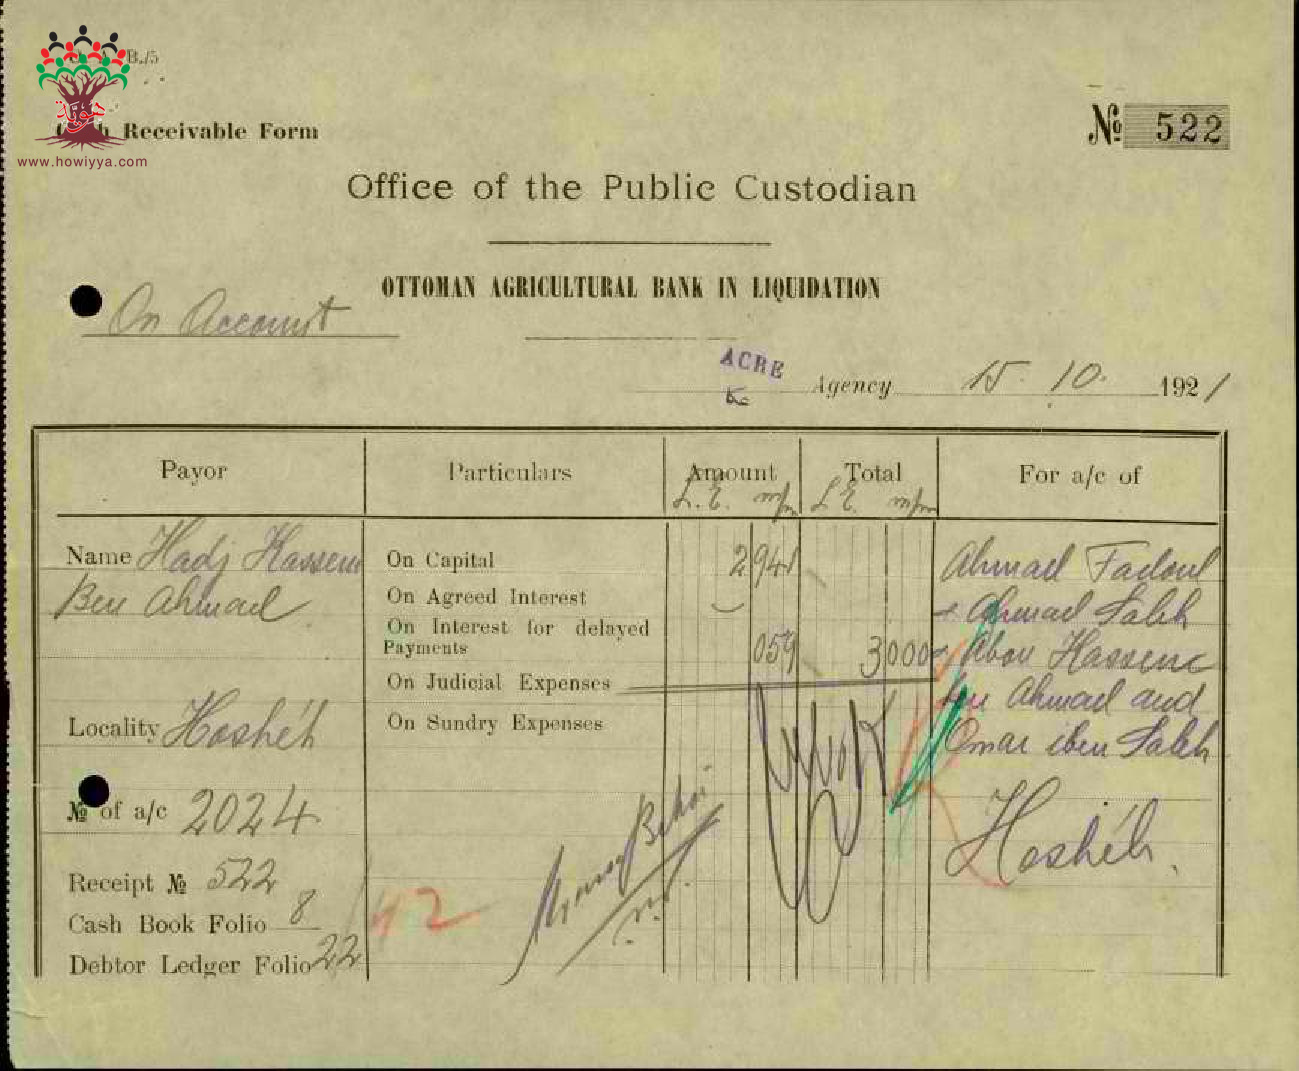 B./5
Receivable Form
www.howiyya.com
№ 522
Office of the Public Custodian
OTTOMAN AGRICULTURAL BANK IN LIQUIDATION
On Account
ACRE Agency 15. 10. 1921
Payor Particulars Amount Total For a/c of
L.E. m/m L.E. m/m
Name Hadj Hassein On Capital 2 941 Ahmad Fadoul
Ben Ahmad On Agreed Interest Ahmad Saleh
On Interest for delayed
Payments 059 3 000 Abou Hassene
On Judicial Expenses Ahmad and
Locality Hoshéh On Sundry Expenses Omar iben Saleh
№ of a/c 2024 Hoshéh.
Receipt № 522
Cash Book Folio 8 42
Debtor Ledger Folio 22